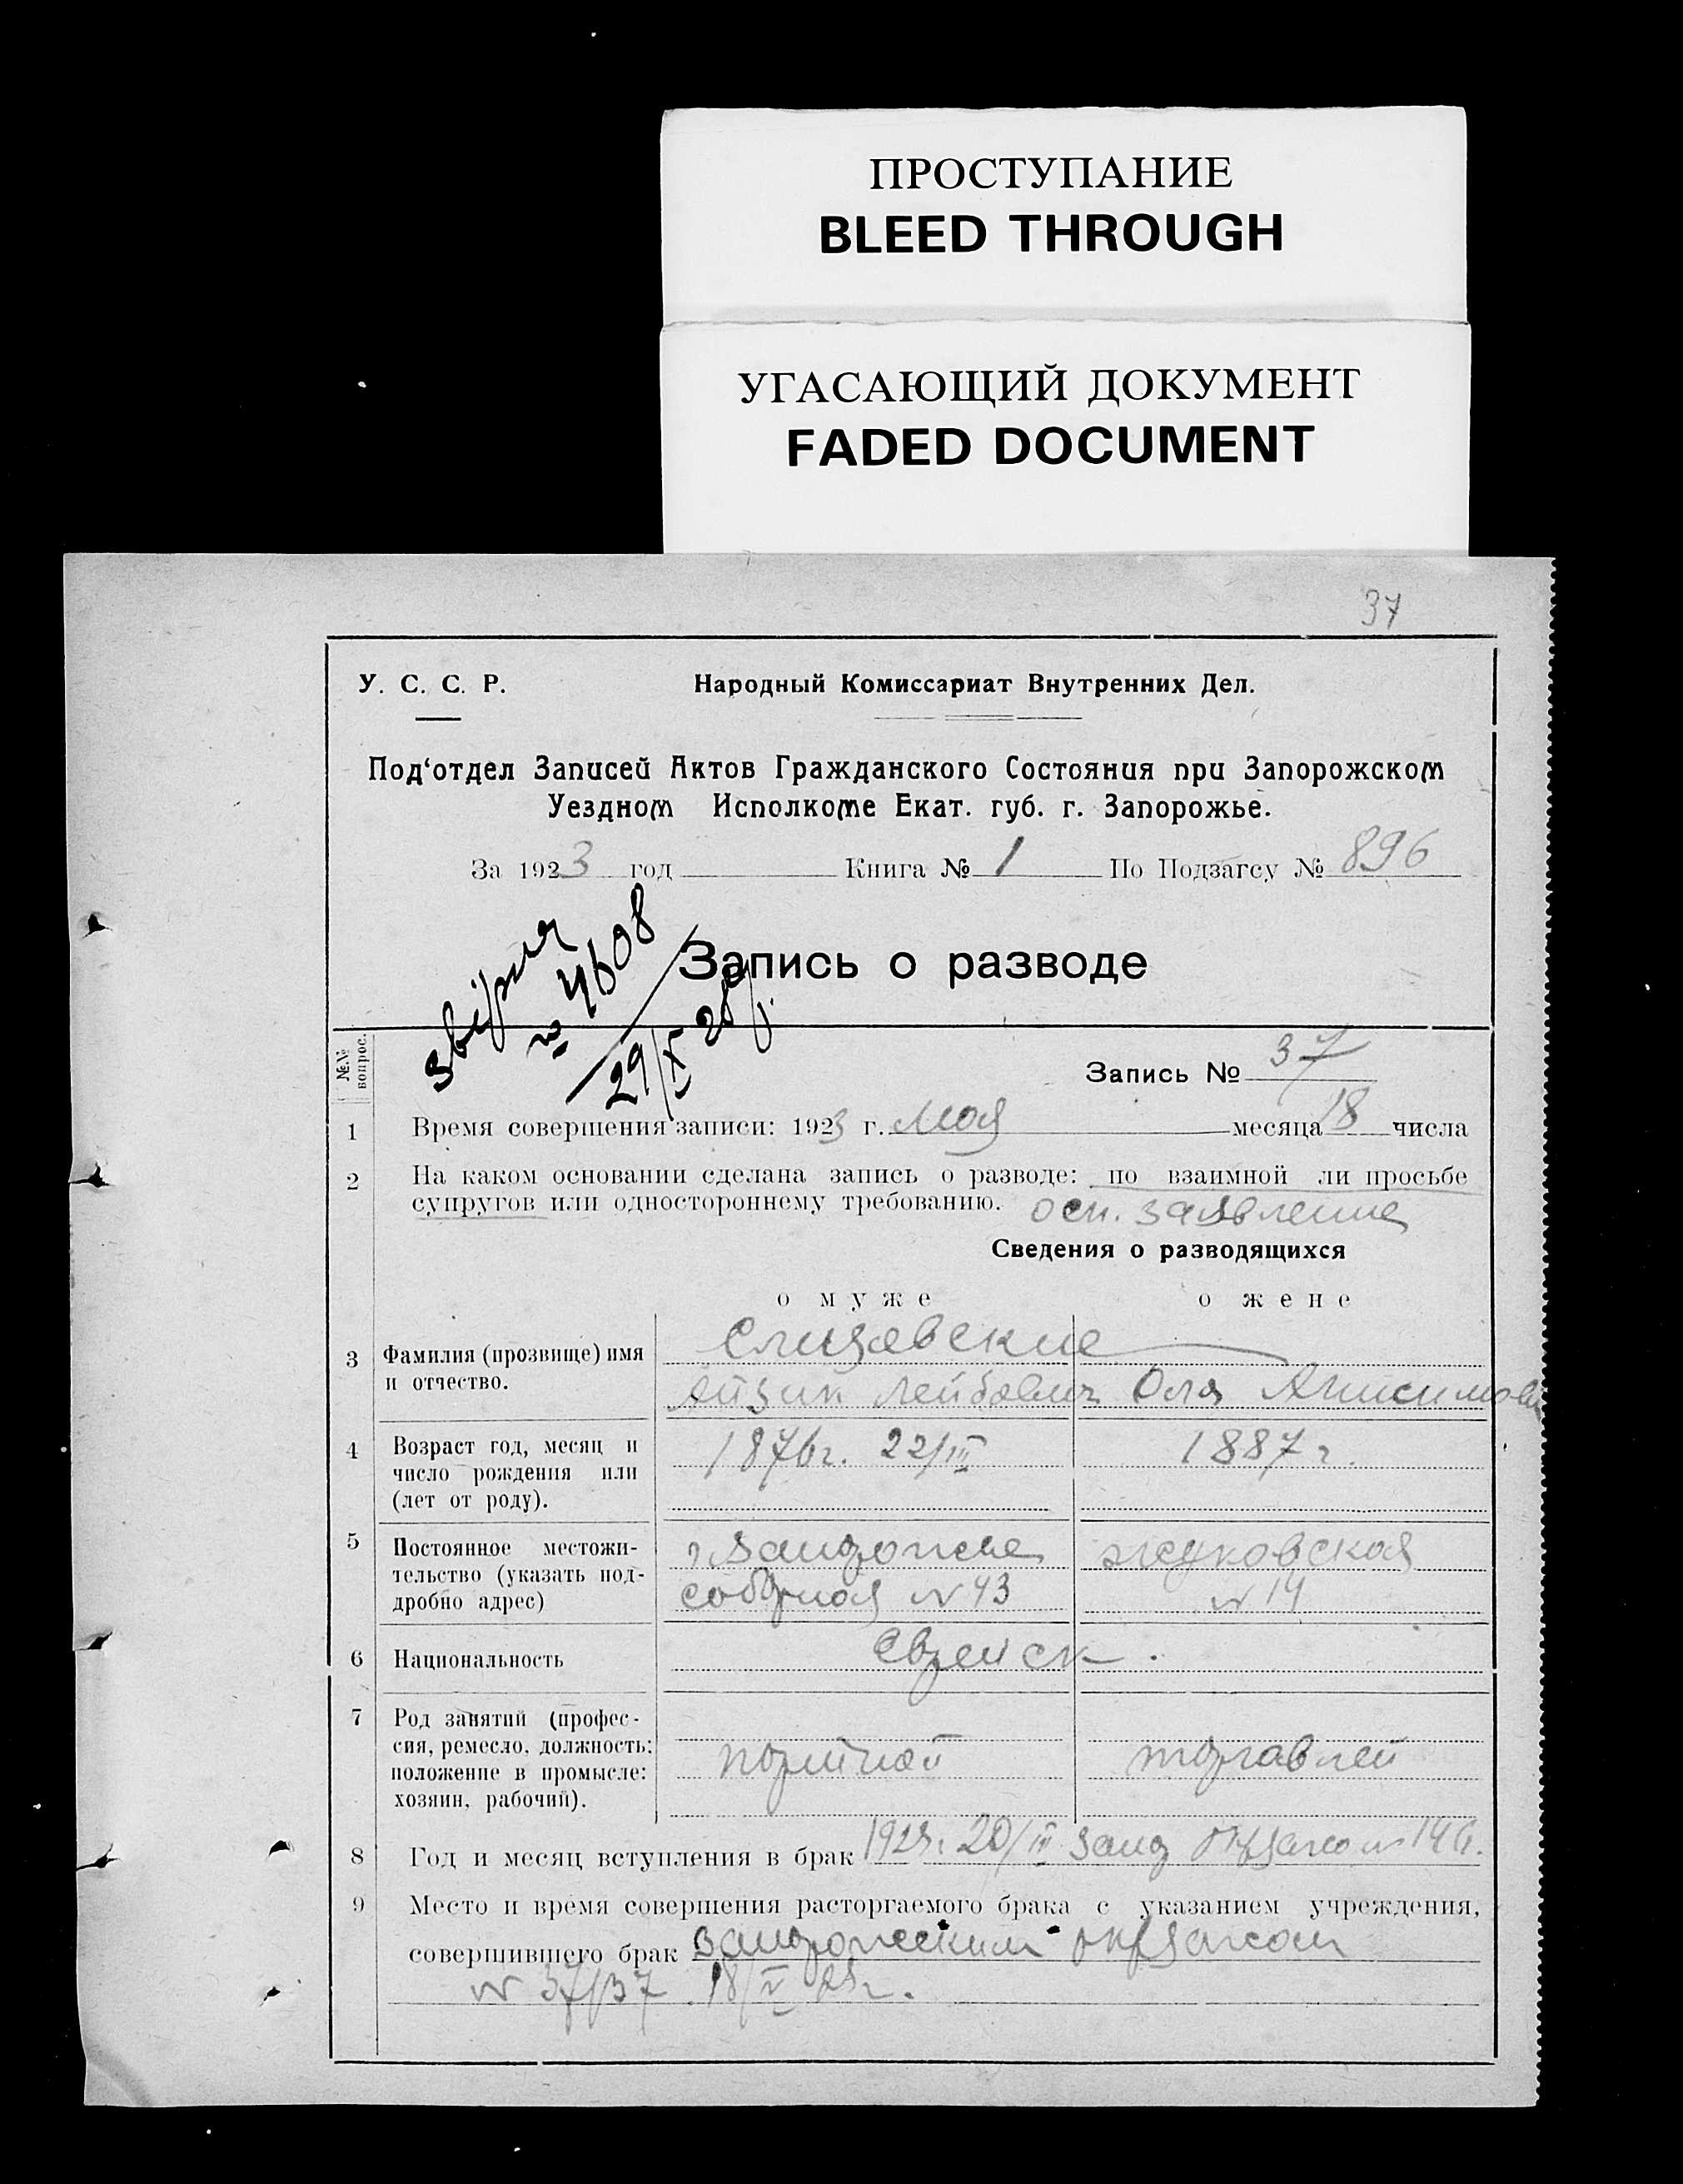 ПРОСТУПАНИЕ
BLEED THROUGH
УГАСАЮЩИЙ ДОКУМЕНТ
FADED DOCUMENT
37
У. С. С. Р. Народный Комиссариат Внутренних Дел.
Под‘отдел Записей Актов Гражданского Состояния при Запорожском
Уездном Исполкоме Екат. губ. г. Запорожье.
За 1923 год Книга № 1 По Подзагсу № 896
№ 4608
29/X 28 р.
Запись о разводе
№№ вопрос.
Запись № 37
1 Время совершения записи: 1923 г. Мая месяца 18 числа
2 На каком основании сделана запись о разводе: по взаимной ли просьбе
супругов или одностороннему требованию. осн. заявление
Сведения о разводящихся
о муже о жене
3 Фамилия (прозвище) имя
и отчество.
Елизавские
Айзик Лейбович Оля Анисимовн
4 Возраст год, месяц и
число рождения или
(лет от роду).
1876г. 22/III 1887 г.
5 Постоянное местожи-
тельство (указать под-
дробно адрес)
г. Запорожье Жуковская
Соборная № 43 № 14
6 Национальность Еврейск.
7 Род занятий (профес-
сия, ремесло, должность:
положение в промысле:
хозяин, рабочий).
портной торговлей
8 Год и месяц вступления в брак 20/III Запор № 146.
9 Место и время совершения расторгаемого брака с указанием учреждения,
совершившего брак Запорожским
№ 37/37 18/V 23г.